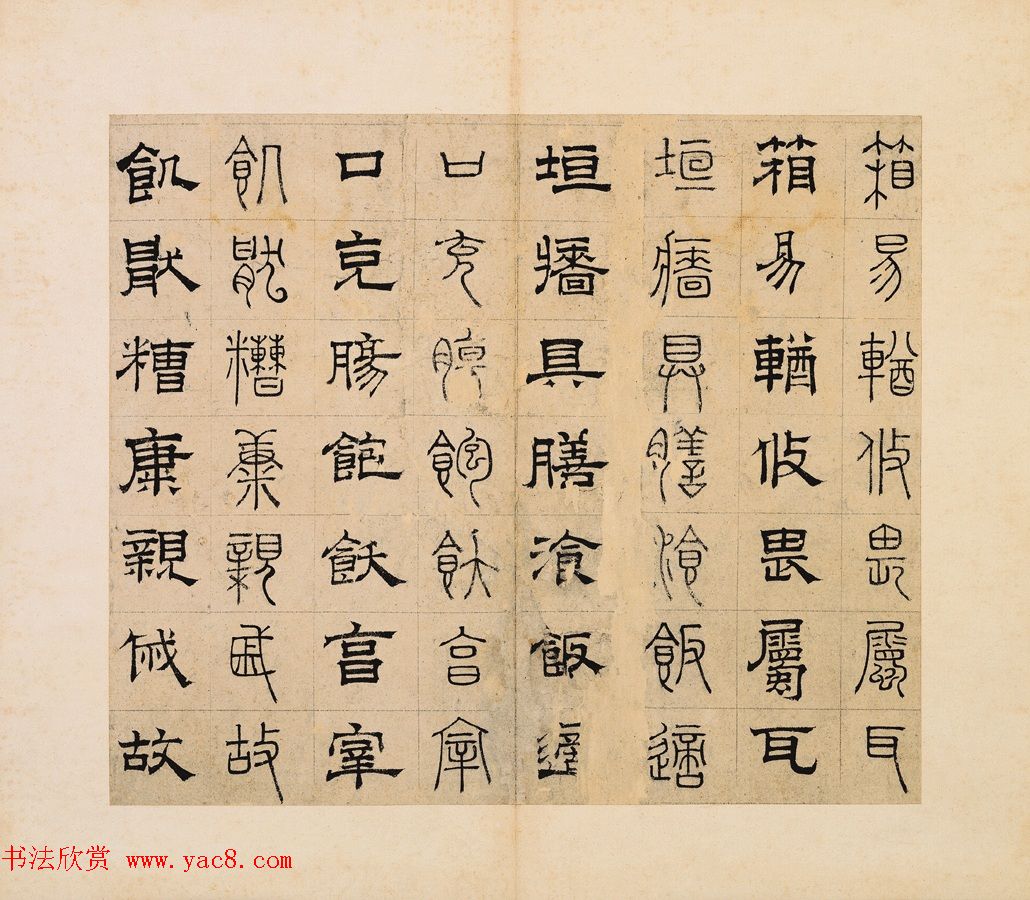 箱易輶攸畏屬耳
箱易輶攸畏屬耳
垣牆具膳飡飯適
垣牆具膳飡飯適
口充腸飽飫亯宰
口充腸飽飫亯宰
飢猒糟康親戚故
飢猒糟康親戚故
书法欣赏 www.yac8.com